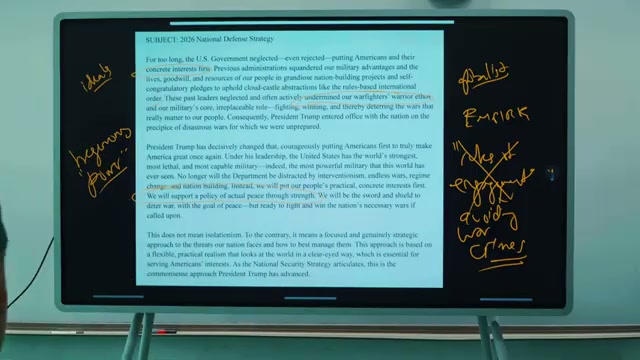 SUBJECT: 2026 National Defense Strategy
For too long, the U.S. Government neglected—even rejected—putting Americans and their
concrete interests first. Previous administrations squandered our military advantages and the
lives, goodwill, and resources of our people in grandiose nation-building projects and self-
congratulatory pledges to uphold cloud-castle abstractions like the rules-based international
order. These past leaders neglected and often actively undermined our warfighters' warrior ethos
and our military's core, irreplaceable role—fighting, winning, and thereby deterring the wars that
really matter to our people. Consequently, President Trump entered office with the nation on the
precipice of disastrous wars for which we were unprepared.
President Trump has decisively changed that, courageously putting Americans first to truly make
America great once again. Under his leadership, the United States has the world's strongest,
most lethal, and most capable military—indeed, the most powerful military that this world has
ever seen. No longer will the Department be distracted by interventionism, endless wars, regime
change, and nation building. Instead, we will put our people's practical, concrete interests first.
We will support a policy of actual peace through strength. We will be the sword and shield to
deter war, with the goal of peace—but ready to fight and win the nation's necessary wars if
called upon.
This does not mean isolationism. To the contrary, it means a focused and genuinely strategic
approach to the threats our nation faces and how to best manage them. This approach is based on
a flexible, practical realism that looks at the world in a clear-eyed way, which is essential for
serving Americans' interests. As the National Security Strategy articulates, this is the
commonsense approach President Trump has advanced.
ideals
"power"
EMPIRE
"rules of
engagement"
avoiding
war
crimes